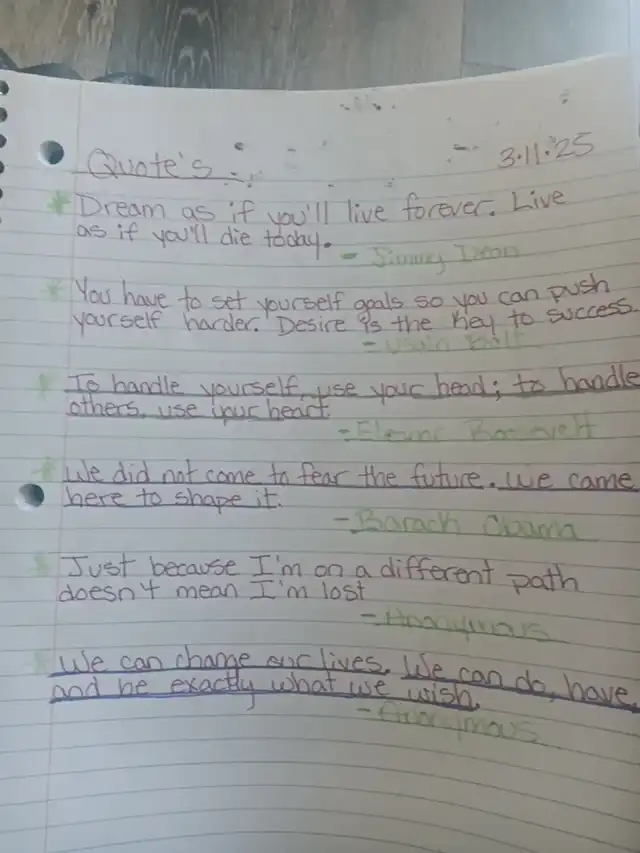 Quote's
3.11.'25
* Dream as if you'll live forever. Live
as if you'll die today.
- Jimmy Dean
* You have to set yourself goals so you can push
yourself harder. Desire is the key to success.
- Usain Bolt
* To handle yourself, use your head; to handle
others, use your heart
- Eleanor Roosevelt
* We did not come to fear the future. We came
here to shape it.
- Barack Obama
* Just because I'm on a different path
doesn't mean I'm lost
- Anonymous
* We can change our lives. We can do, have,
and be exactly what we wish.
- Anonymous